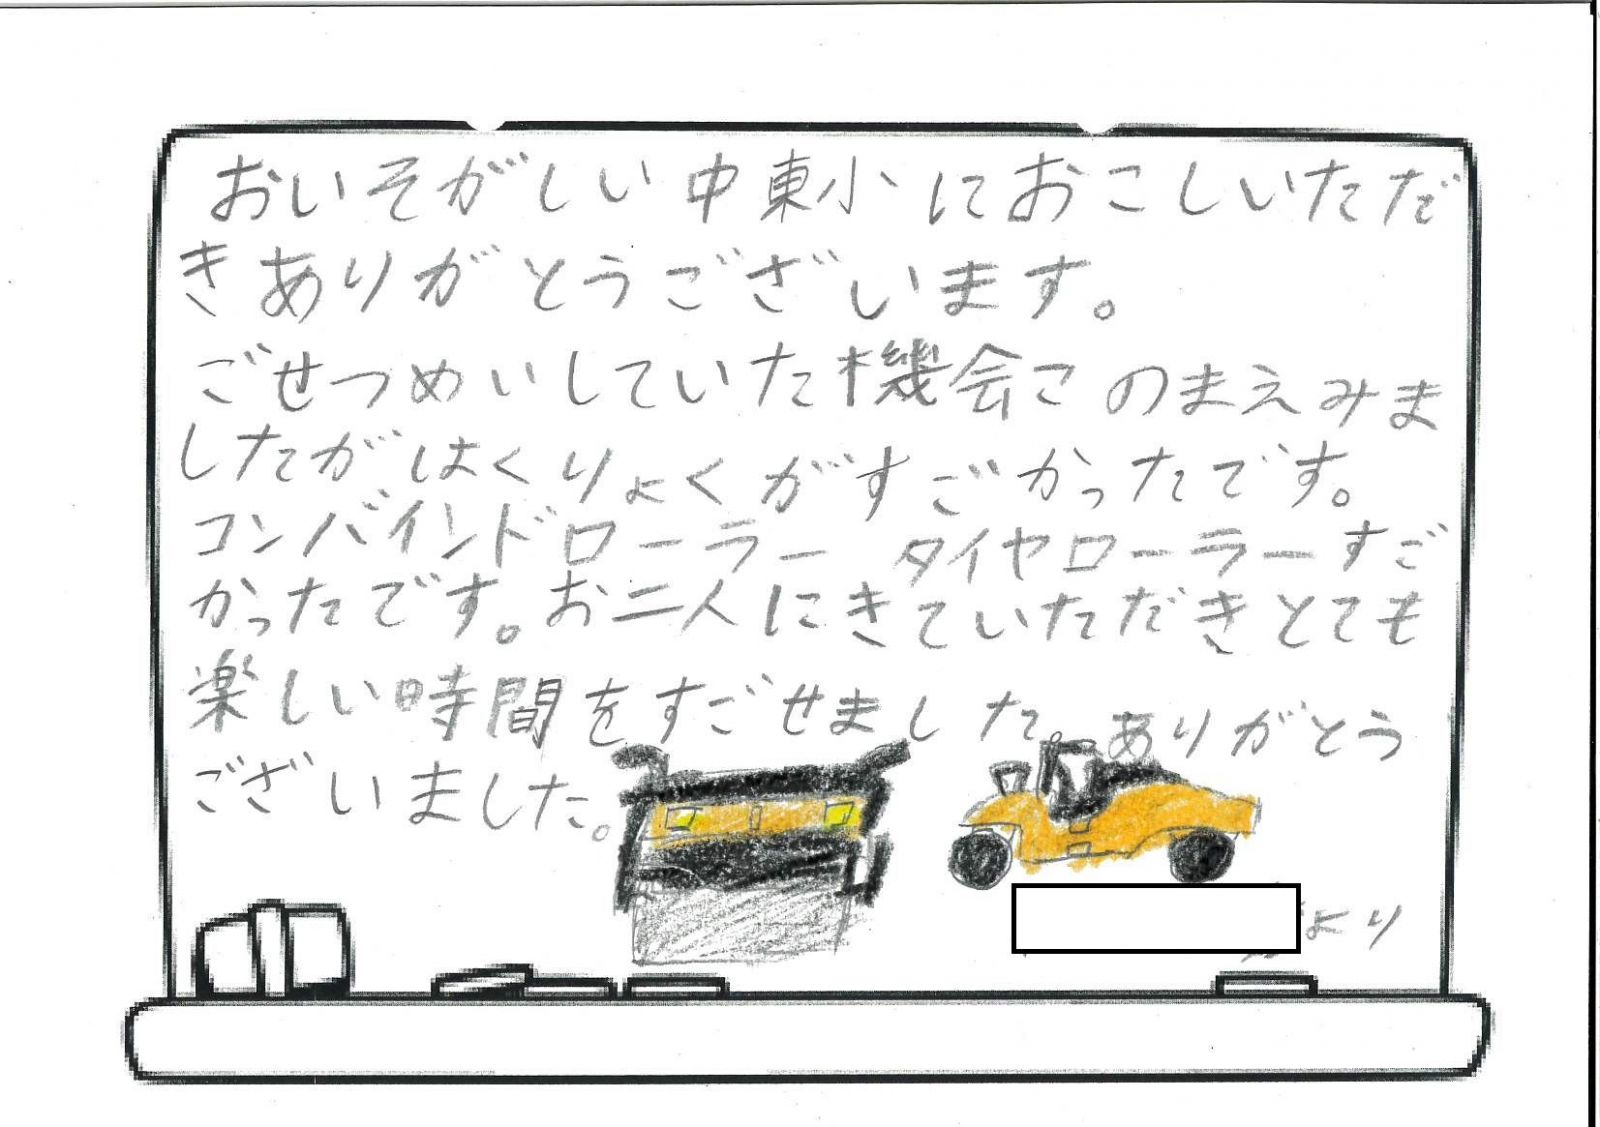 おいそがしい中東小におこしいただ
きありがとうございます。
ごせつめいしていた機会このまえみま
したがはくりょくがすごかったです。
コンバインドローラータイヤローラーすご
かったです。お二人にきていただきとても
楽しい時間をすごせました。ありがとう
ございました。
より